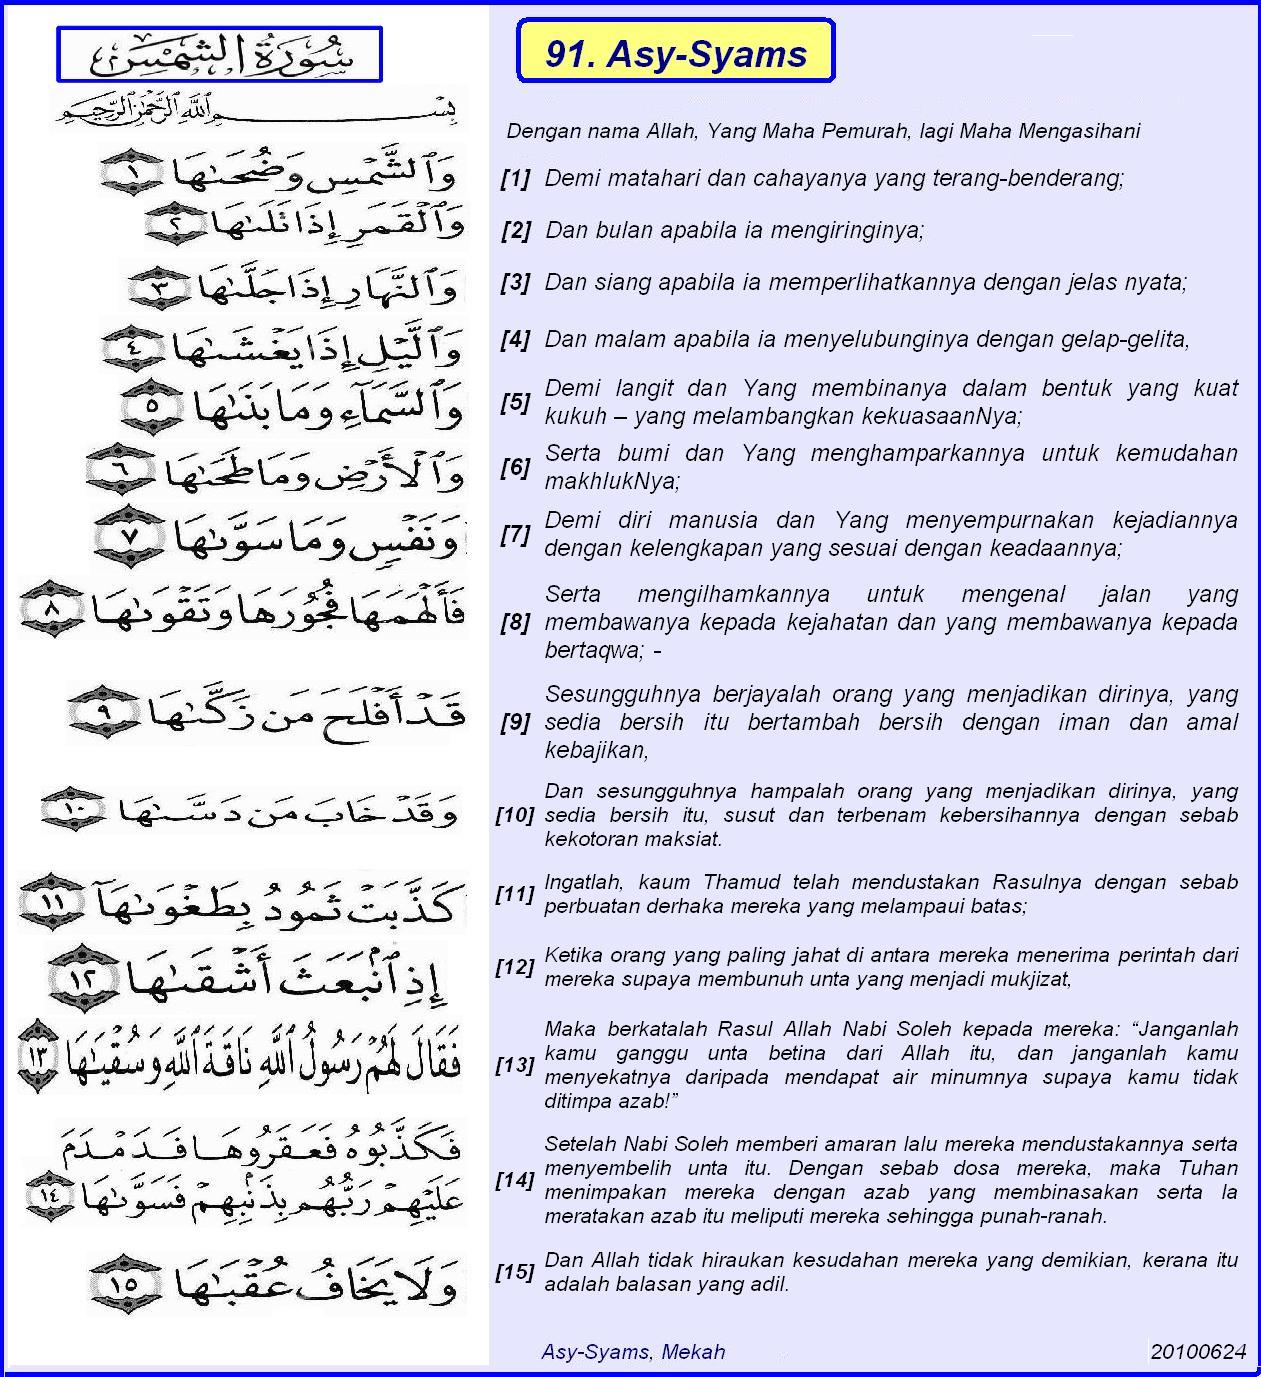 سُورَةُ الشَّمْسِ
91. Asy-Syams
بِسْمِ اللَّهِ الرَّحْمَٰنِ الرَّحِيمِ
Dengan nama Allah, Yang Maha Pemurah, lagi Maha Mengasihani
وَٱلشَّمْسِ وَضُحَىٰهَا ١
[1] Demi matahari dan cahayanya yang terang-benderang;
وَٱلْقَمَرِ إِذَا تَلَىٰهَا ٢
[2] Dan bulan apabila ia mengiringinya;
وَٱلنَّهَارِ إِذَا جَلَّىٰهَا ٣
[3] Dan siang apabila ia memperlihatkannya dengan jelas nyata;
وَٱلَّيْلِ إِذَا يَغْشَىٰهَا ٤
[4] Dan malam apabila ia menyelubunginya dengan gelap-gelita,
وَٱلسَّمَآءِ وَمَا بَنَىٰهَا ٥
[5] Demi langit dan Yang membinanya dalam bentuk yang kuat
kukuh – yang melambangkan kekuasaanNya;
وَٱلْأَرْضِ وَمَا طَحَىٰهَا ٦
[6] Serta bumi dan Yang menghamparkannya untuk kemudahan
makhlukNya;
وَنَفْسٍ وَمَا سَوَّىٰهَا ٧
[7] Demi diri manusia dan Yang menyempurnakan kejadiannya
dengan kelengkapan yang sesuai dengan keadaannya;
فَأَلْهَمَهَا فُجُورَهَا وَتَقْوَىٰهَا ٨
[8] Serta mengilhamkannya untuk mengenal jalan yang
membawanya kepada kejahatan dan yang membawanya kepada
bertaqwa; -
قَدْ أَفْلَحَ مَن زَكَّىٰهَا ٩
[9] Sesungguhnya berjayalah orang yang menjadikan dirinya, yang
sedia bersih itu bertambah bersih dengan iman dan amal
kebajikan,
وَقَدْ خَابَ مَن دَسَّىٰهَا ١٠
[10] Dan sesungguhnya hampalah orang yang menjadikan dirinya, yang
sedia bersih itu, susut dan terbenam kebersihannya dengan sebab
kekotoran maksiat.
كَذَّبَتْ ثَمُودُ بِطَغْوَىٰهَآ ١١
[11] Ingatlah, kaum Thamud telah mendustakan Rasulnya dengan sebab
perbuatan derhaka mereka yang melampaui batas;
إِذِ ٱنۢبَعَثَ أَشْقَىٰهَا ١٢
[12] Ketika orang yang paling jahat di antara mereka menerima perintah dari
mereka supaya membunuh unta yang menjadi mukjizat,
فَقَالَ لَهُمْ رَسُولُ ٱللَّهِ نَاقَةَ ٱللَّهِ وَسُقْيَٰهَا ١٣
[13] Maka berkatalah Rasul Allah Nabi Soleh kepada mereka: “Janganlah
kamu ganggu unta betina dari Allah itu, dan janganlah kamu
menyekatnya daripada mendapat air minumnya supaya kamu tidak
ditimpa azab!”
فَكَذَّبُوهُ فَعَقَرُوهَا فَدَمْدَمَ
عَلَيْهِمْ رَبُّهُم بِذَنۢبِهِمْ فَسَوَّىٰهَا ١٤
[14] Setelah Nabi Soleh memberi amaran lalu mereka mendustakannya serta
menyembelih unta itu. Dengan sebab dosa mereka, maka Tuhan
menimpakan mereka dengan azab yang membinasakan serta Ia
meratakan azab itu meliputi mereka sehingga punah-ranah.
وَلَا يَخَافُ عُقْبَٰهَا ١٥
[15] Dan Allah tidak hiraukan kesudahan mereka yang demikian, kerana itu
adalah balasan yang adil.
Asy-Syams, Mekah
20100624